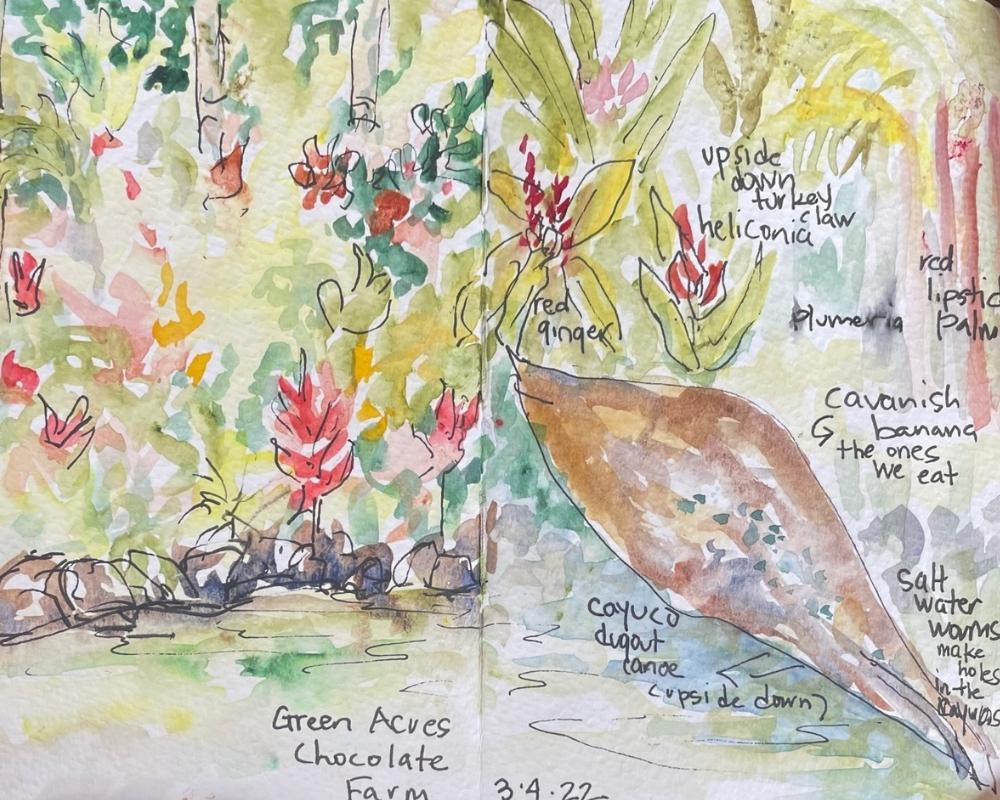 upside
down
turkey
claw
heliconia
red
ginger
red
lipstic
palm
plumeria
cavanish
banana
the ones
we eat
salt
water
worms
make
holes
in the
cayucos
cayuco
dugout
canoe
(upside down)
Green Acres
Chocolate
Farm
3.4.22